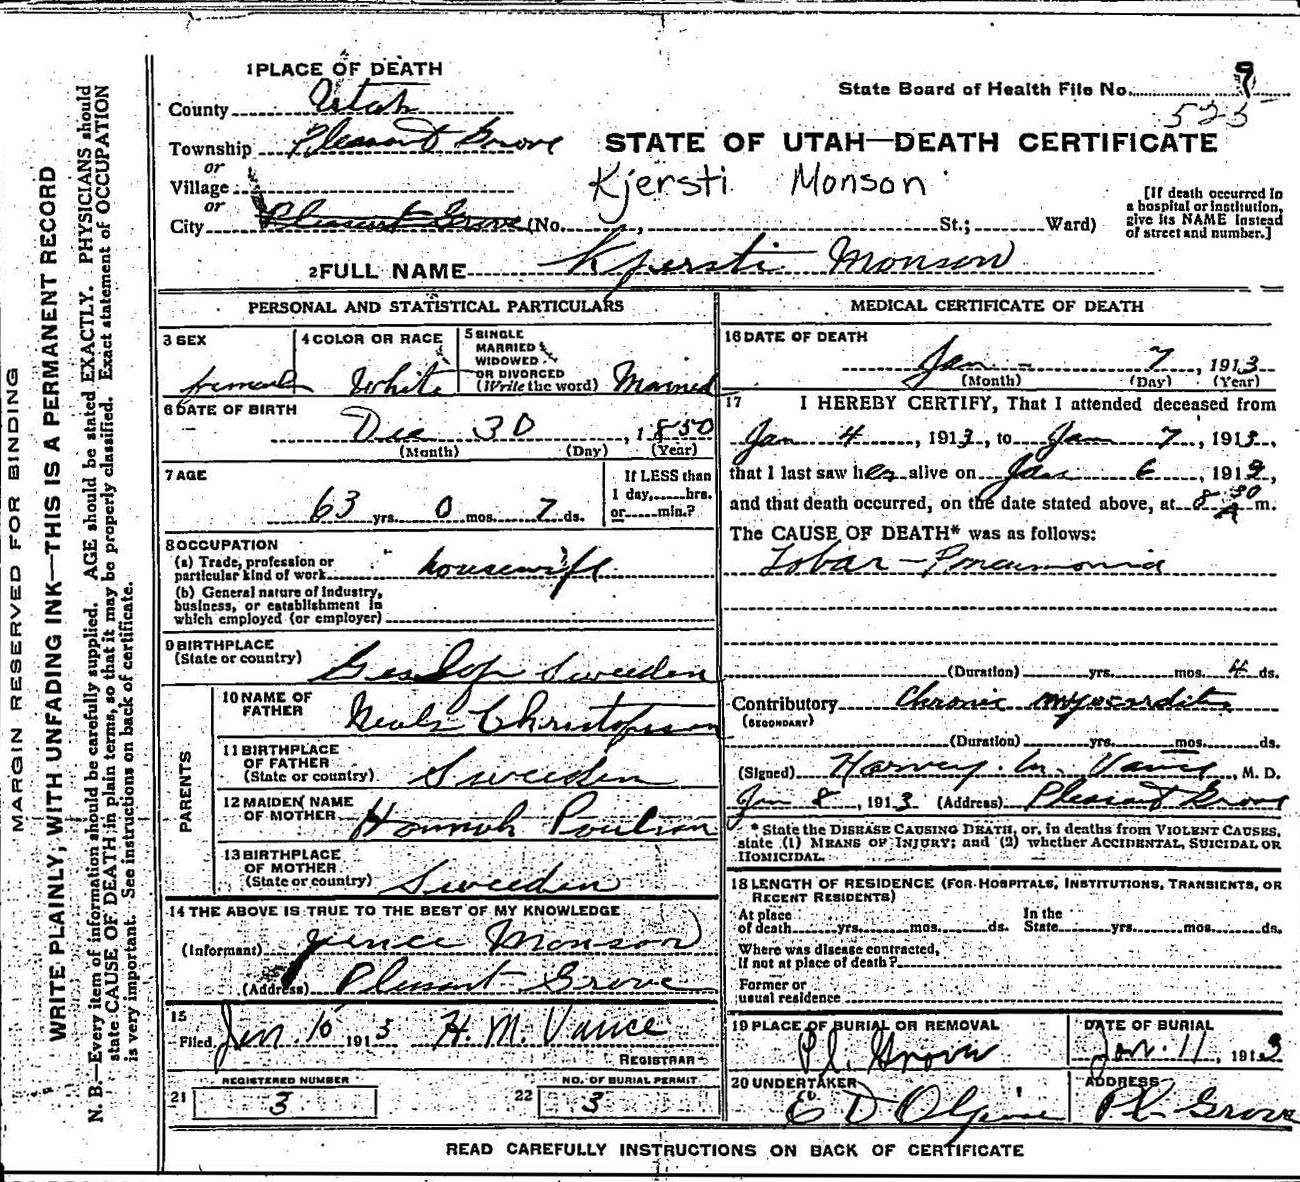 1 PLACE OF DEATH
County Utah
State Board of Health File No. 9
525
Township Pleasant Grove
or
STATE OF UTAH—DEATH CERTIFICATE
Village
or
Kjersti Monson
City Pleasant Grove (No. , St.; Ward)
[If death occurred in
a hospital or institution,
give its NAME instead
of street and number.]
2 FULL NAME Kjersti Monson
PERSONAL AND STATISTICAL PARTICULARS
3 SEX
female
4 COLOR OR RACE
White
5 SINGLE
MARRIED
WIDOWED
OR DIVORCED
(Write the word) Married
6 DATE OF BIRTH
Dec 30, 1850
(Month) (Day) (Year)
7 AGE
63 yrs. 0 mos. 7 ds.
If LESS than
1 day, hrs.
or min.?
8 OCCUPATION
(a) Trade, profession or
particular kind of work housewife
(b) General nature of industry,
business, or establishment in
which employed (or employer)
9 BIRTHPLACE
(State or country) Sweeden
PARENTS
10 NAME OF
FATHER Neals Christofson
11 BIRTHPLACE
OF FATHER
(State or country) Sweeden
12 MAIDEN NAME
OF MOTHER Hannah Poulson
13 BIRTHPLACE
OF MOTHER
(State or country) Sweeden
14 THE ABOVE IS TRUE TO THE BEST OF MY KNOWLEDGE
(Informant) Monson
(Address) Pleasant Grove
15
Filed Jan. 10 1913 H. M. Vance
REGISTRAR
21 REGISTERED NUMBER
3
22 NO. OF BURIAL PERMIT
3
MEDICAL CERTIFICATE OF DEATH
16 DATE OF DEATH
Jan - 7, 1913
(Month) (Day) (Year)
17 I HEREBY CERTIFY, That I attended deceased from
Jan 4, 1913, to Jan 7, 1913,
that I last saw her alive on Jan 6 1913,
and that death occurred, on the date stated above, at 8 30 A m.
The CAUSE OF DEATH* was as follows:
Lobar - Pneumonia
(Duration) yrs. mos. 4 ds.
Contributory Chronic myocarditis
(SECONDARY)
(Duration) yrs. mos. ds.
(Signed) Harvey M. Vance, M. D.
Jan 8, 1913 (Address) Pleasant Grove
* State the DISEASE CAUSING DEATH, or, in deaths from VIOLENT CAUSES,
state (1) MEANS OF INJURY; and (2) whether ACCIDENTAL, SUICIDAL OR
HOMICIDAL.
18 LENGTH OF RESIDENCE (FOR HOSPITALS, INSTITUTIONS, TRANSIENTS, OR
RECENT RESIDENTS)
At place
of death yrs. mos. ds.
In the
State yrs. mos. ds.
Where was disease contracted,
if not at place of death?
Former or
usual residence
19 PLACE OF BURIAL OR REMOVAL
Pl. Grove
DATE OF BURIAL
Jan. 11, 1913
20 UNDERTAKER
E D Olpin
ADDRESS
Pl. Grove
READ CAREFULLY INSTRUCTIONS ON BACK OF CERTIFICATE
MARGIN RESERVED FOR BINDING
WRITE PLAINLY, WITH UNFADING INK—THIS IS A PERMANENT RECORD
N. B.—Every item of information should be carefully supplied. AGE should be stated EXACTLY. PHYSICIANS should
state CAUSE OF DEATH in plain terms, so that it may be properly classified. Exact statement of OCCUPATION
is very important. See instructions on back of certificate.